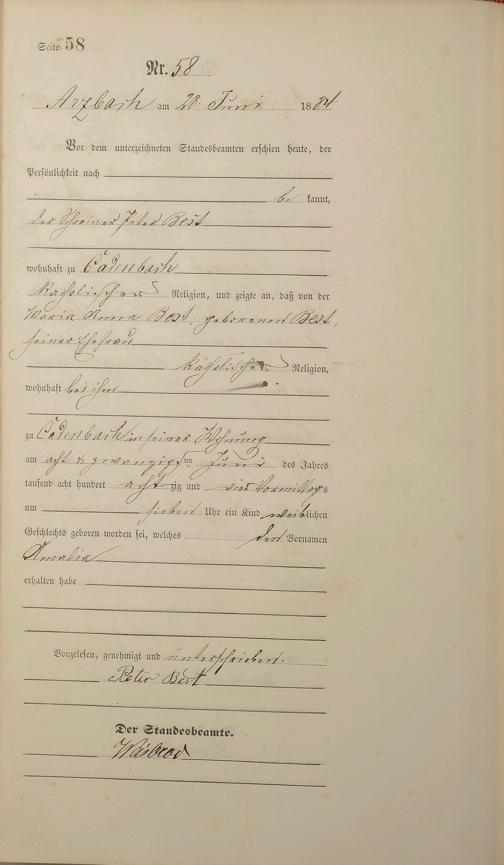 Seite 58
Nr. 58
Arzbach am 28. Juni 1884.
Vor dem unterzeichneten Standesbeamten erschien heute, der
Persönlichkeit nach
be kannt,
der Schreiner Peter Best
wohnhaft zu Cadenbach
katholischer Religion, und zeigte an, daß von der
Maria Anna Best, geborenen Best,
seiner Ehefrau
katholischer Religion,
wohnhaft bei ihm
zu Cadenbach in seiner Wohnung
am acht & zwanzigsten Juni des Jahres
tausend acht hundert acht zig und vier Vormittags
um sieben Uhr ein Kind weiblichen
Geschlechts geboren worden sei, welches den Vornamen
Amalia
erhalten habe
Vorgelesen, genehmigt und unterschrieben.
Peter Best
Der Standesbeamte.